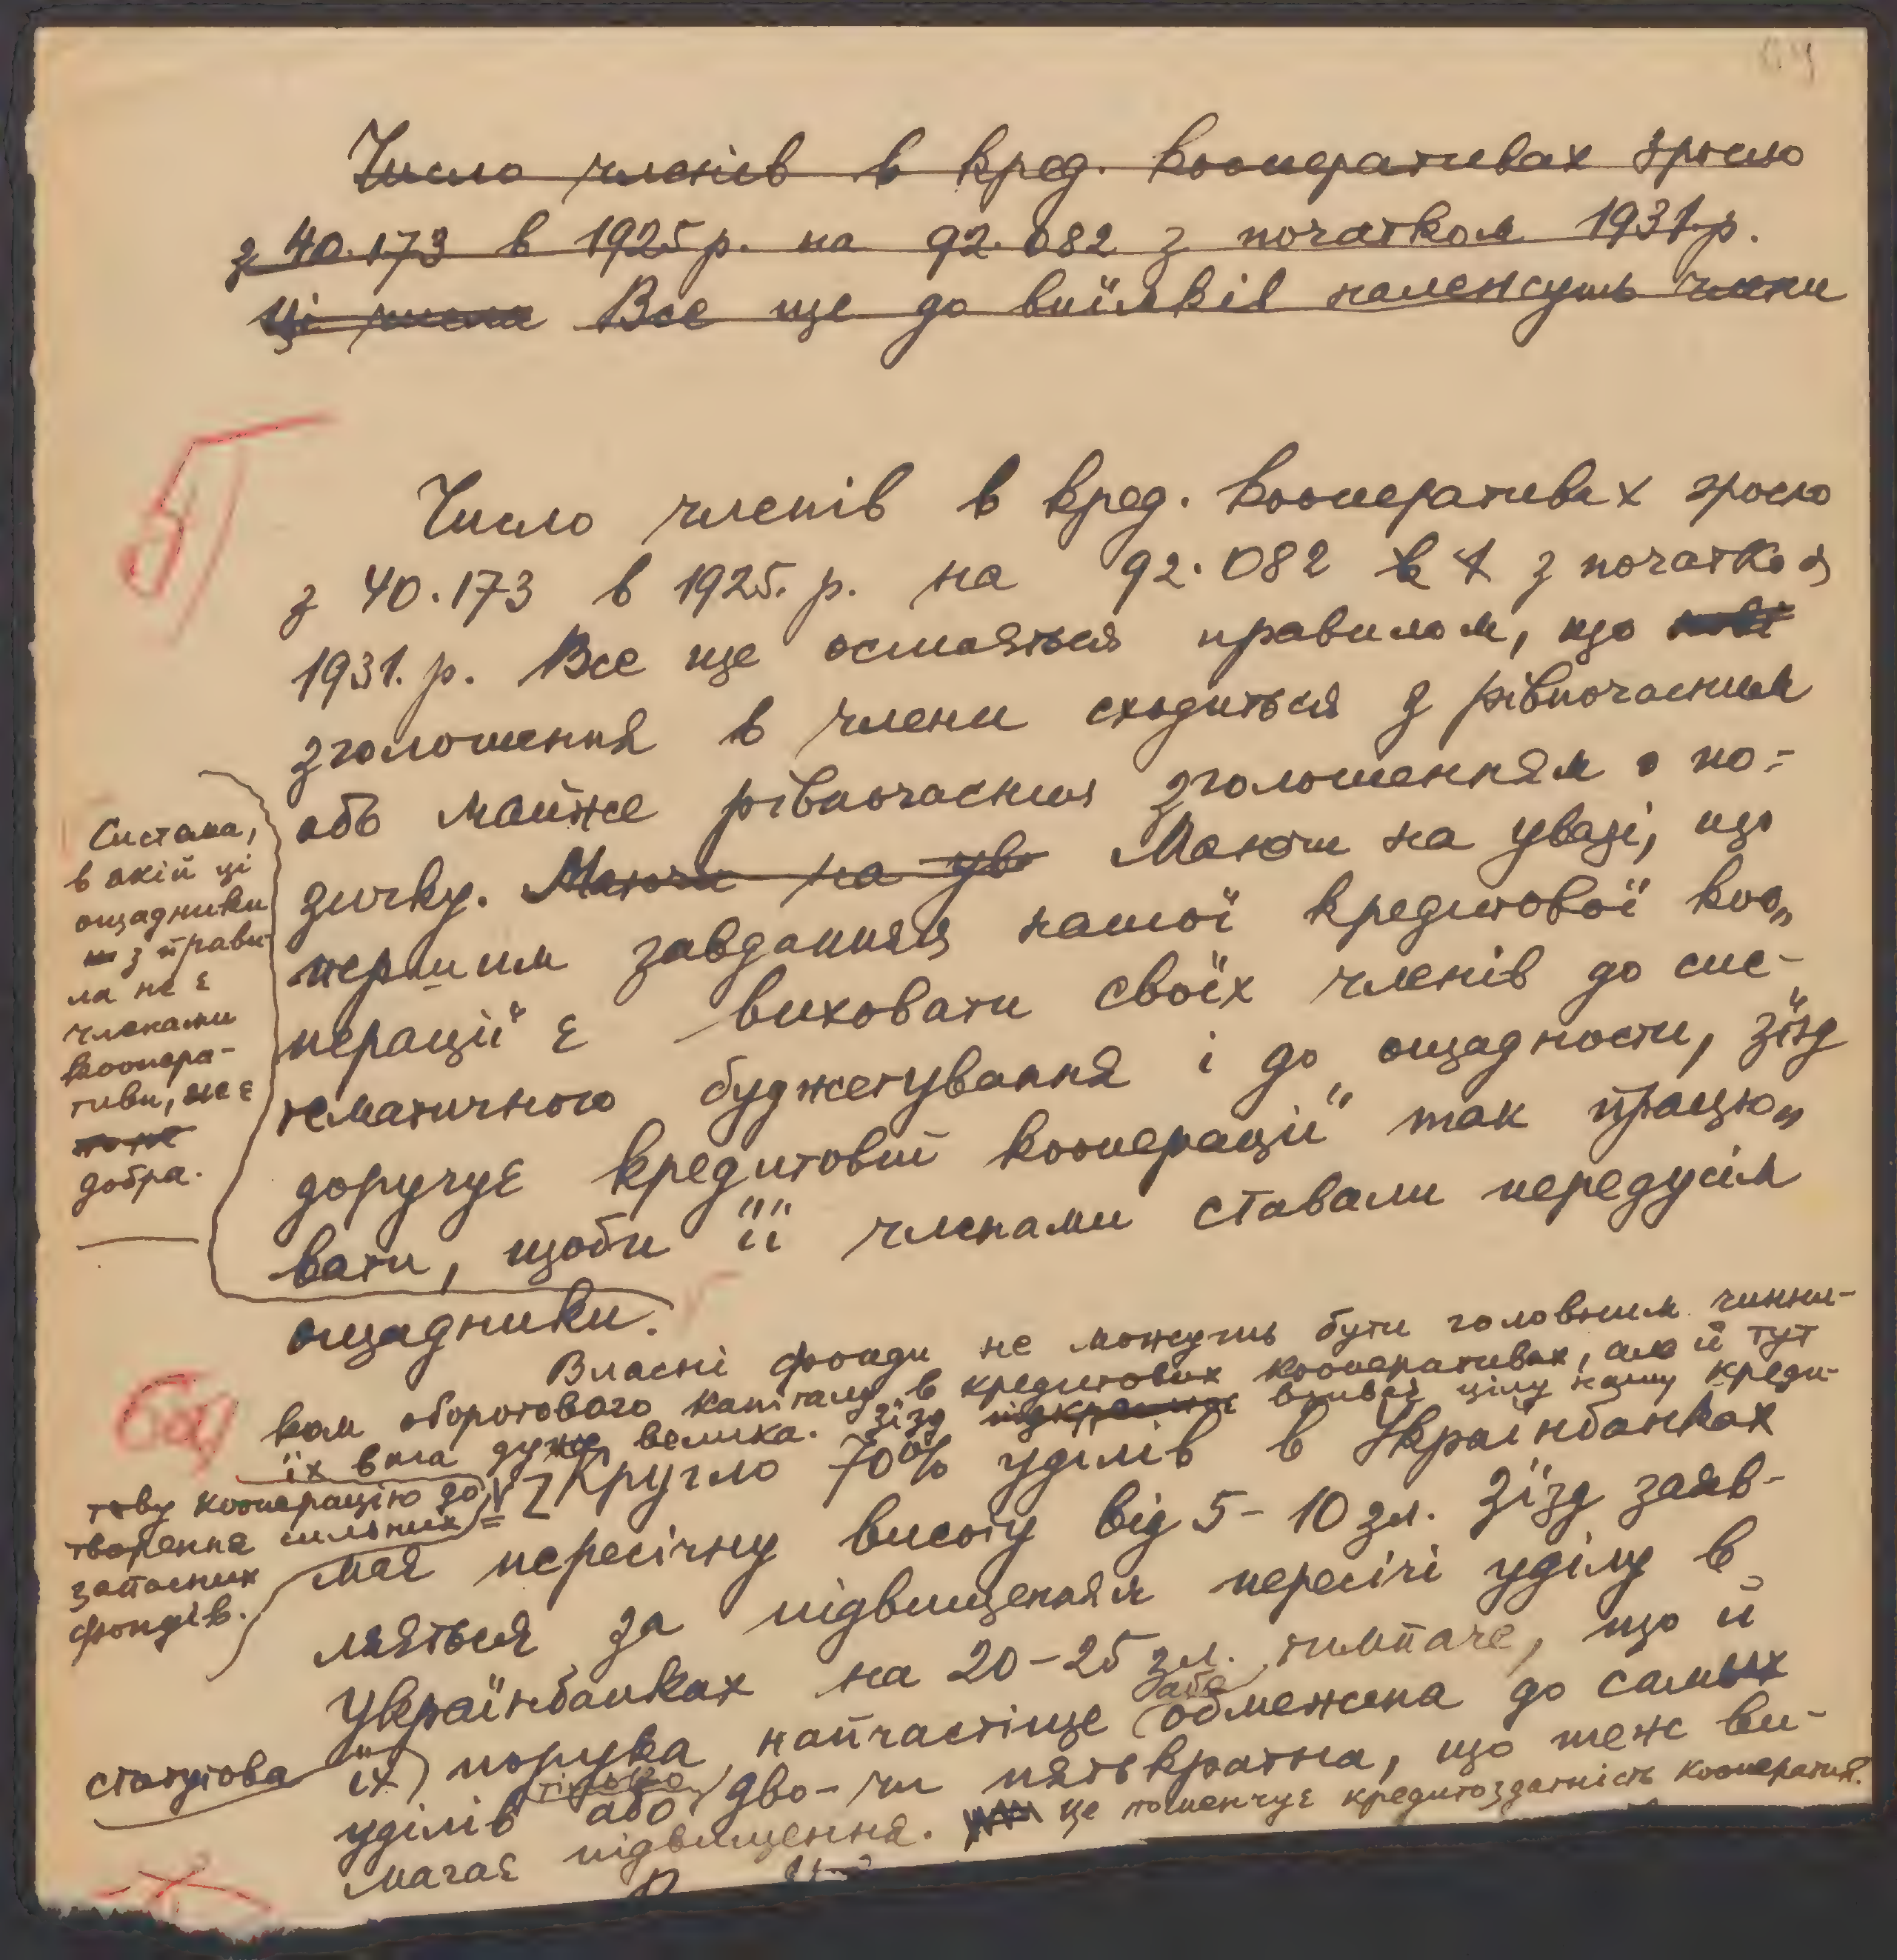 Число членів в кред. кооперативах зросло
з 40.173 в 1925 р. на 92.082 з початком 1931.р.
Ці числа Все ще до виїмків належуть члени
5)
Число членів в кред. кооперативах зросло
з 40.173 в 1925. р. на 92.082 в 1 з початком
1931. р. Все ще остаяться правилом, що
зголошення в члени сходиться з рівночасним
або майже рівночасним зголошенням о по=
зичку. Маючи на ува Маючи на увазі, що
першим завданням нашої кредитової коо„
перації є виховати своїх членів до сис-
тематичного буджетування і до ощадности, Зїзд
доручує кредитовій кооперації так працю„
вати, щоби її членами ставали передусім
ощадники.
Систама,
в якій ці
ощадники
з прави
ла не є
членами
коопера-
тиви, не є
добра.
6а)
Власні фонди не можуть бути головним чинни-
ком оборотового капіталу в кредитових кооперативах, але й тут
їх вага дуже велика. Зїзд підкреслює взиває цілу нашу креди-
тову кооперацію до
творення сильних
запасних
фондів.
Кругло 70% уділів в Українбанках
має пересічну висоту від 5-10 зл. Зїзд заяв-
ляється за підвищенням пересічі уділу в
Українбанках на 20-25 зл. тимпаче, що й
статутова їх порука найчастіще або обмежена до самых
уділів або тілько дво-чи пятькратна, що теж ви-
магає підвищення. це поменчує кредитоздатність кооператив.